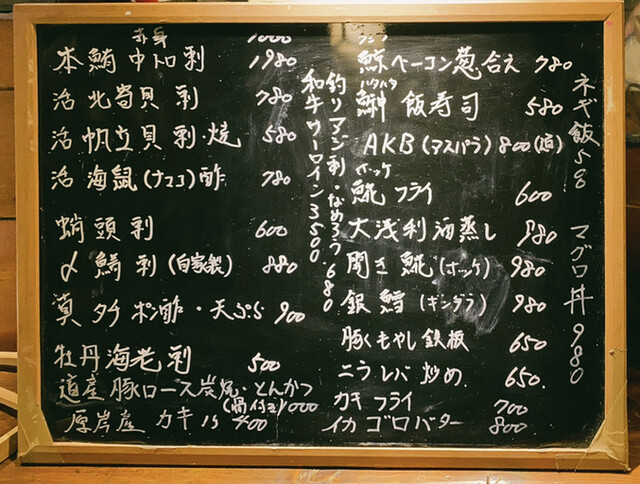 赤身 1000
本鮪中トロ刺 1980
活 北寄貝 刺 780
活 帆立貝 刺・焼 580
活 海鼠(ナマコ)酢 780
蛸頭刺 600
〆鯖刺(自家製) 880
真タチ ポン酢・天ぷら 900
牡丹海老刺 500
道産豚ロース炭焼・とんかつ
(骨付き)1000
厚岸産 カキ 1ヶ 400
釣りアジ刺・なめろう680
和牛サーロイン3500
クジラ
鯨ベーコン葱合え 780
ハタハタ
鰰 飯寿司 580
AKB(アスパラ)800
ホッケ
𩸽フライ 600
大浅利酒蒸し 980
開き𩸽(ホッケ) 980
銀鱈(ギンダラ) 980
豚ともやし鉄板 650
ニラレバ炒め 650.
カキフライ 700
イカゴロバター 800
ネギ飯 580
マグロ丼 980